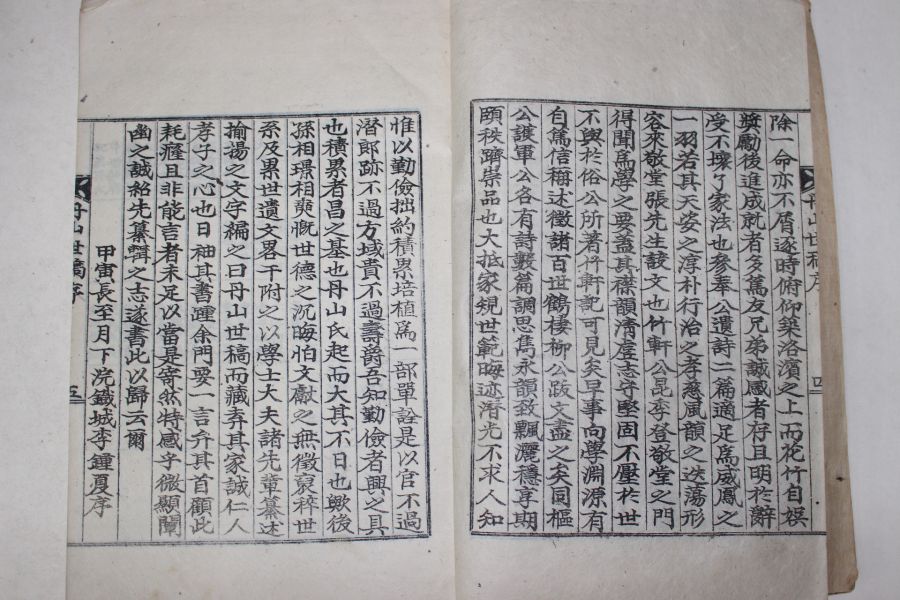 除一命亦不屑逐時俯仰築洛濱之上而花竹自娛
獎勵後進成就者多篤友兄弟誠感者存且明於辭
受不壞了家法也參奉公遺詩二篇適足爲威鳳之
一羽若其天姿之淳朴行治之孝慈風韻之迭蕩形
容來敬堂張先生誄文也竹軒公昆季登敬堂之門
得聞爲學之要盖其襟韻淸虛志守堅固不壓於世
不興於俗公所著竹軒記可見矣早事向學淵源有
自篤信梅述徵諸百世鶴棲柳公跋文盡之矣同樞
公護軍公各有詩數篇調思雋永韻致飄灑穩享期
頤秩躋崇品也大抵家規世範晦迹潛光不求人知
丹山世稿序
四
惟以勤儉拙約積累培植爲一部單詮是以官不過
潛郞跡不過方域貴不過壽爵吾知勤儉者興之具
也積累者昌之基也丹山氏起而大其不日也歟後
孫相璟相奭慨世德之沉晦怕文獻之無徵裒稡世
系及累世遺文畧干附之以學士大夫諸先輩纂述
揄揚之文字褊之曰丹山世稿而藏弆其家誠仁人
孝子之心也日袖其書踵余門要一言弁其首顧此
耗癃且非能言者未足以當是寄然特感乎微顯闡
幽之誠紹先纂輯之志遂書此以歸云爾
甲寅長至月下浣鐵城李鍾夏序
丹山世稿序
五